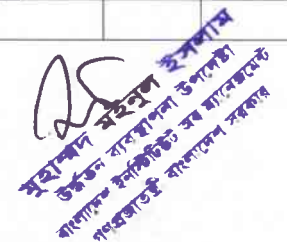 মুহাম্মদ মইনুল ইসলাম
উর্ধ্বতন ব্যবস্থাপনা উপদেষ্টা
বাংলাদেশ ইনস্টিটিউট অব ম্যানেজমেন্ট
গণপ্রজাতন্ত্রী বাংলাদেশ সরকার